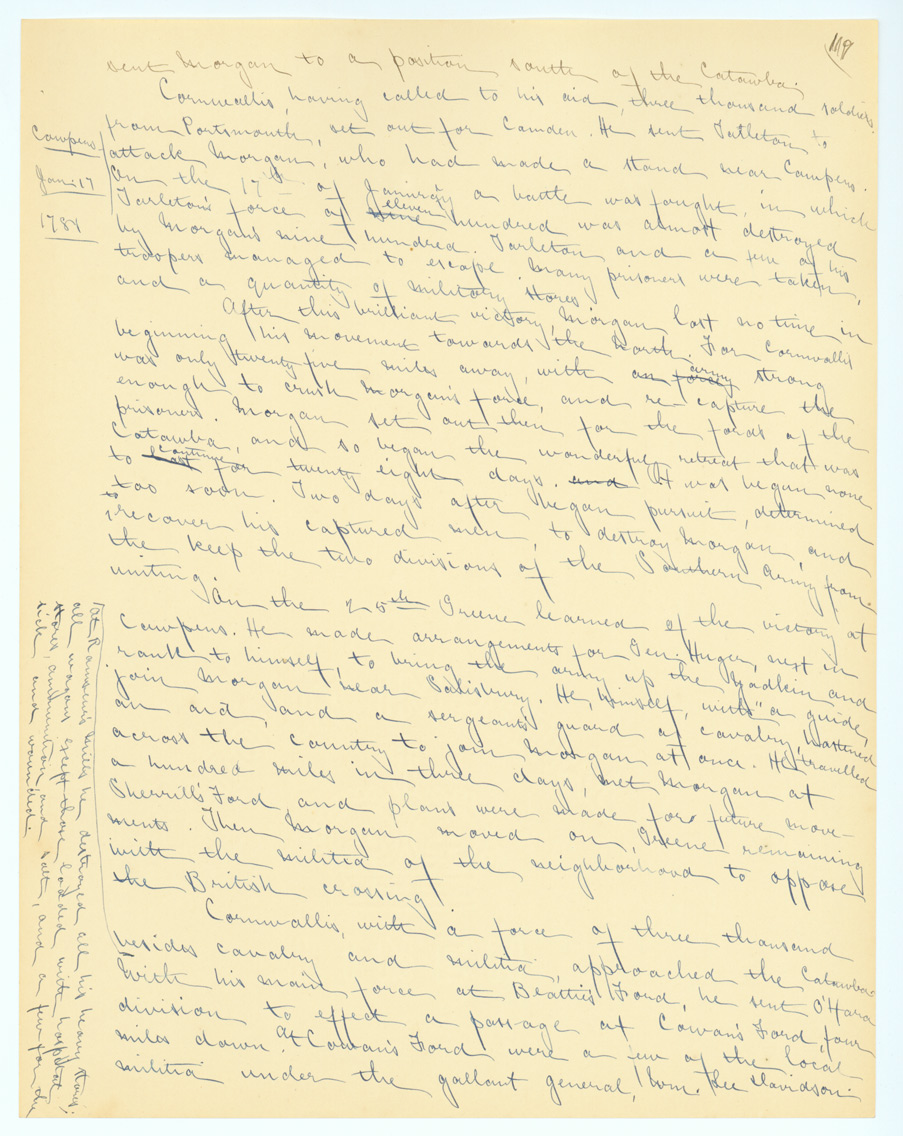 119
sent Morgan to a position south of the Catawba.
Cornwallis, having called to his aid, three thousand soldiers
from Portsmouth, set out for Camden. He sent Tarleton to
attack Morgan, who had made a stand near Cowpens.
On the 17th of January a battle was fought, in which
Tarleton's force of nine eleven hundred was almost destroyed
by Morgan's nine hundred. Tarleton and a few of his
troopers managed to escape. Many prisoners were taken,
and a quantity of military stores.
Cowpens
Jan. 17
1781
After this brilliant victory, Morgan lost no time in
beginning his movement towards the North. For Cornwallis
was only twenty-five miles away, with an force army strong
enough to crush Morgan's force, and re-capture the
prisoners. Morgan set out then for the fords of the
Catawba, and so began the wonderful retreat that was
to last continue for twenty eight days. and It was begun none
too soon. Two days after began pursuit, determined
to recover his captured men, to destroy Morgan, and
the keep the two divisions of the Southern Army from
uniting.
On the 25th Greene learned of the victory at
Cowpens. He made arrangements for Gen. Huger, next in
rank to himself, to bring the army up the Yadkin and
join Morgan near Salisbury. He, himself, with a guide,
an aid, and a sergeant's guard of cavalry, hastened
across the country to join Morgan at once. He travelled
a hundred miles in three days, met Morgan at
Sherrill's Ford, and plans were made for future move-
ments. Then Morgan moved on, Greene remaining
with the militia of the neighborhood to oppose
the British crossing.
at Ramsour's Mills he destroyed all his heavy stores;
all wagons except those loaded with hospital
stores, ammunition and salt, and a few for the
sick and wounded.
Cornwallis, with a force of three thousand
besides cavalry and militia, approached the Catawba.
With his main force at Beattie's Ford, he sent O'Hara
division to effect a passage at Cowan's Ford, four
miles down. At Cowan's Ford were a few of the local
militia under the gallant general, Wm. Lee Davidson.